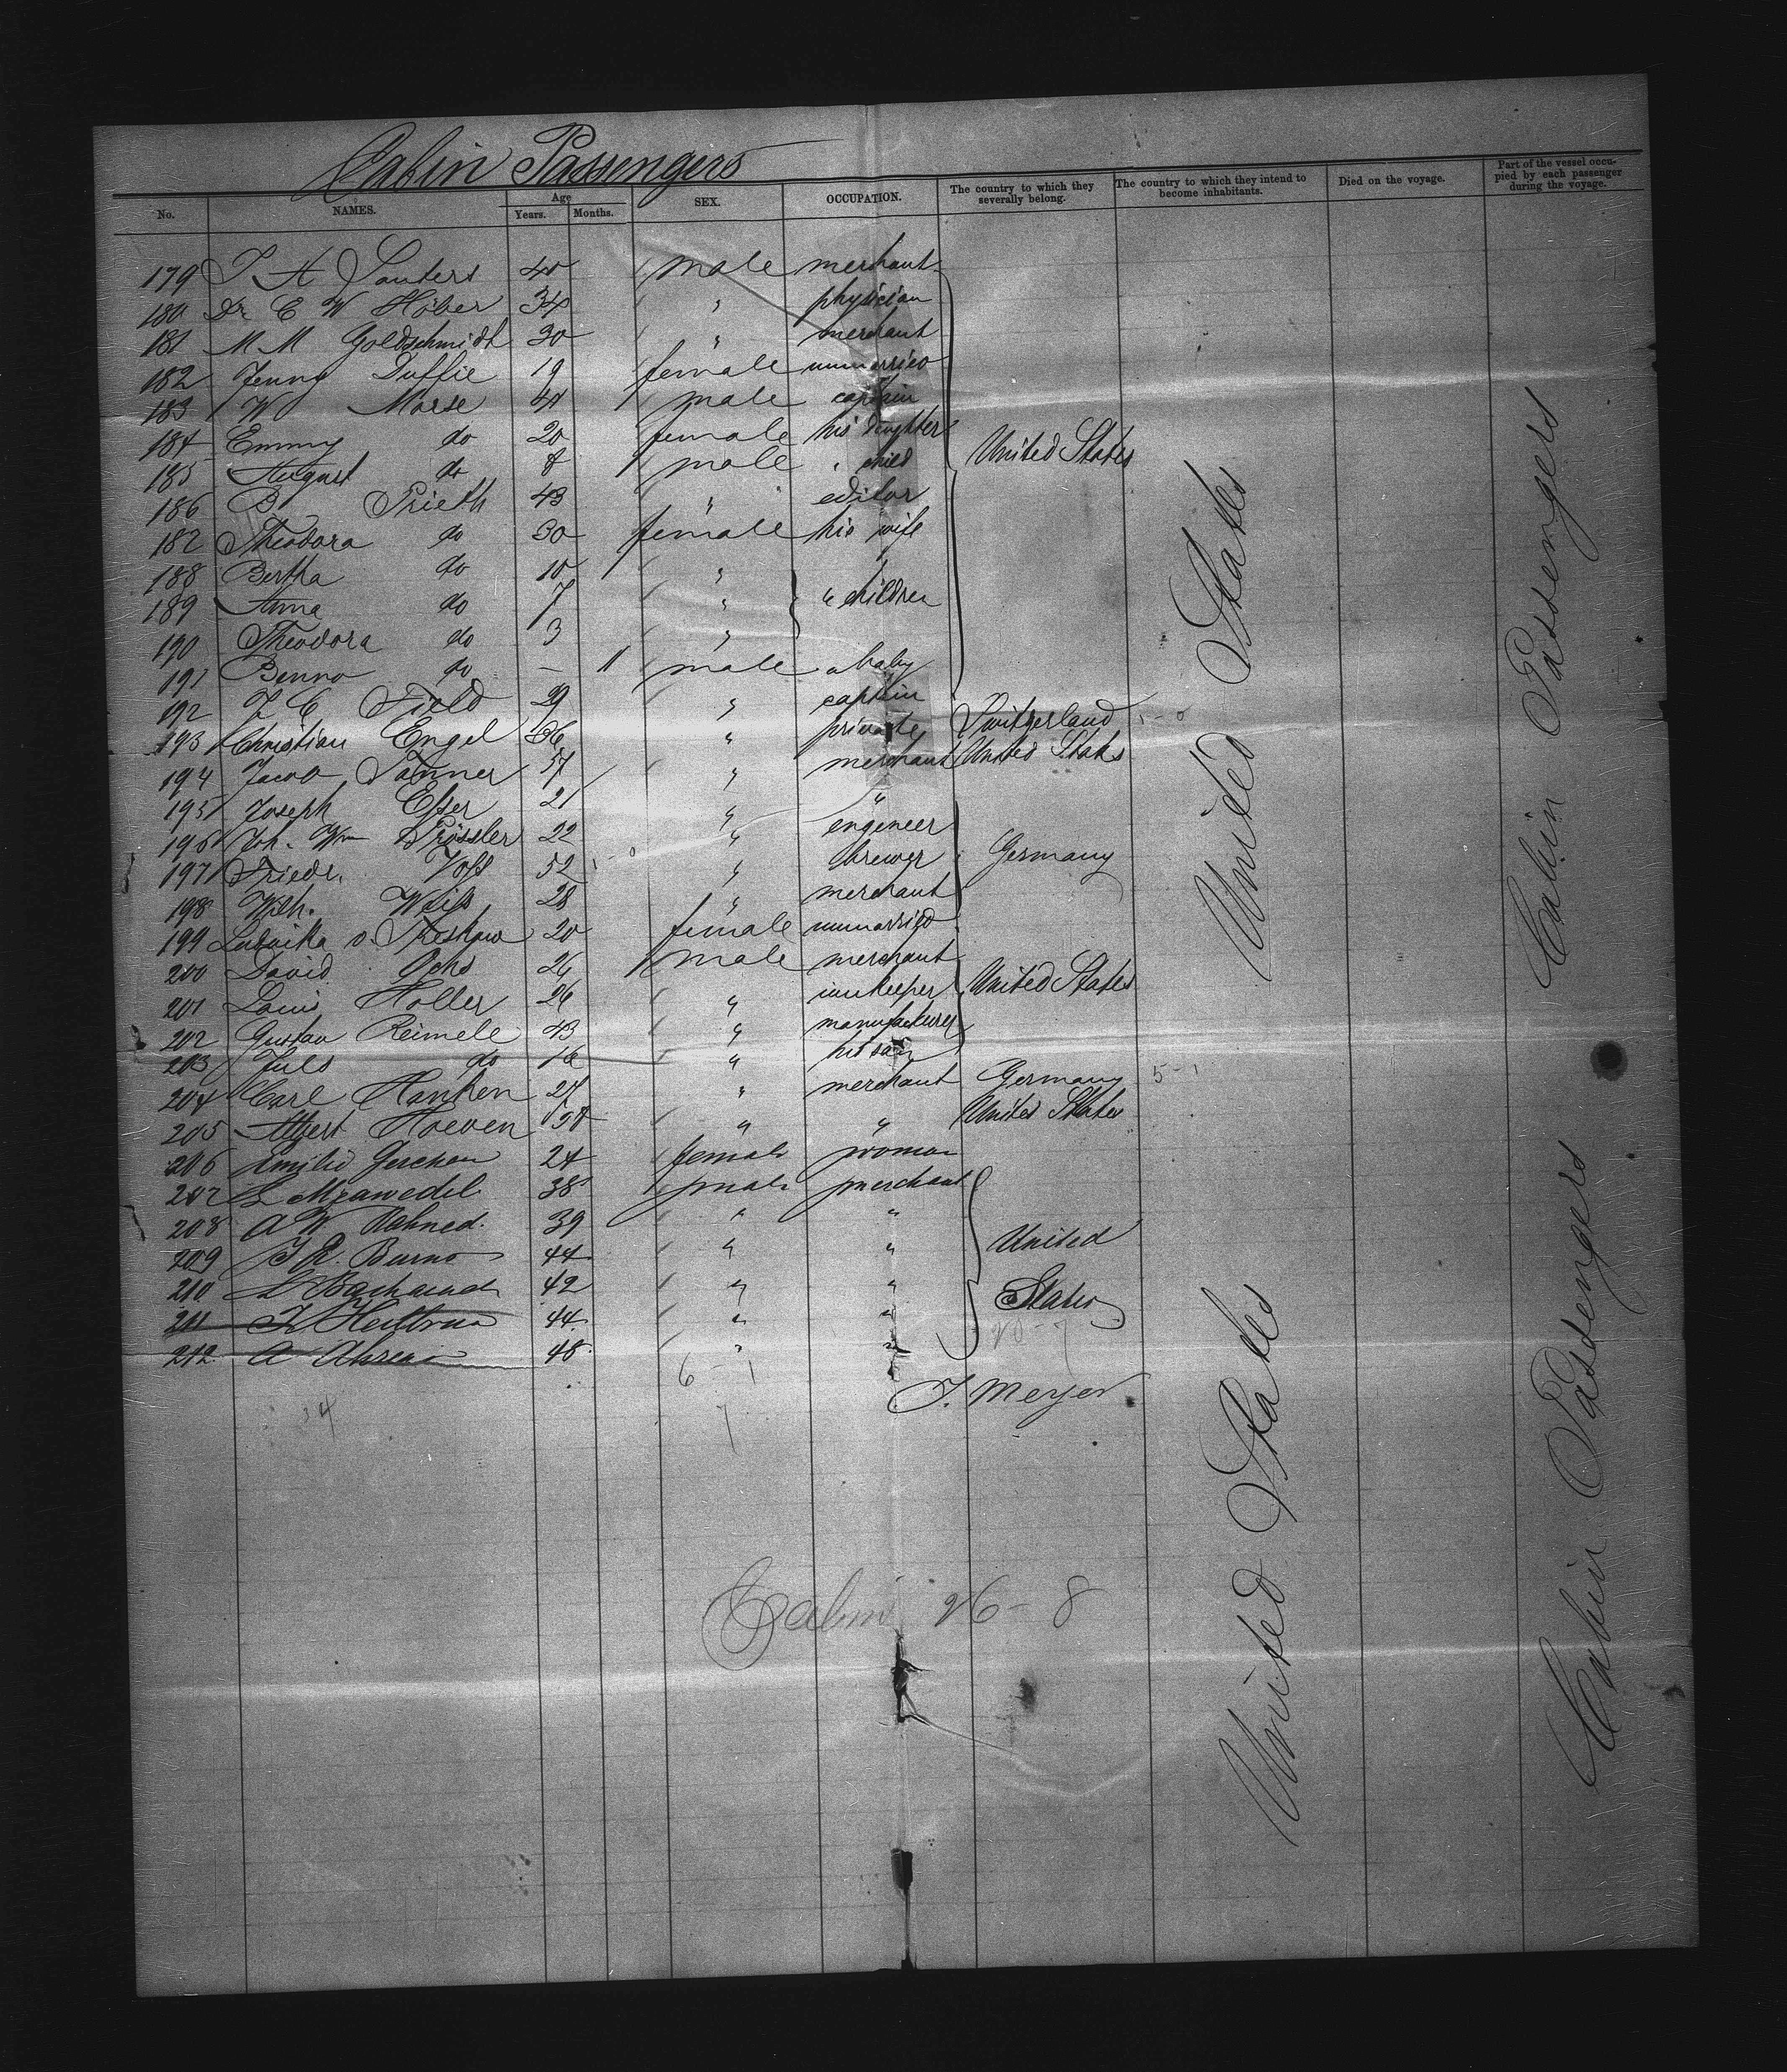 Cabin Passengers
No. NAMES. Age Years. Months. SEX. OCCUPATION. The country to which they severally belong. The country to which they intend to become inhabitants. Died on the voyage. Part of the vessel occupied by each passenger during the voyage.
179 A male merchant
180 Dr. C W Höber 34 " physician
181 M M Goldschmidt 30 " merchant
182 Jenny Duffie 19 female unmarried
183 W Morse male captain
184 Emmy do 20 female his daughter United States
185 August do 8 male " child
186 B Prieth 43 " editor
182 Theodora do 30 female his wife
188 Bertha do 10 "
189 Anna do 7 " " children
190 Theodora do 3 "
191 Benno do — 11 male " baby
192 Field 29 " captain
193 Christian Engel 36 " private Switzerland 5-0
194 Jacob Tanner 57 " merchant United States
195 Joseph Esser 21 " "
196 Joh. Wm Prössler 22 " engeneer
197 Friedr. Voss 52 " brewer Germany
198 Wilh. Weiss 28 " merchant
199 v. Treskow 20 female unmarried
200 David Ochs 26 male merchant
201 Louis Holler 26 " innkeeper United States
202 Gustav Reimele 43 " manufacturer
203 Juls do 16 " his son
204 Carl Hanken 27 " merchant Germany 5-1
205 Albert Hoeven " " United States
206 Emilie Gerchen 24 female woman
207 38 male merchant
208 A W 39 " "
209 Burns 44 " " United
210 L 42 " " States
211 Heilbrun 44 " "
212 A Ahrens 48 " "
6 - 1
J. Meyer
34
7
Cabin 26 - 8
United States
United States
Cabin Passengers
Cabin Passengers